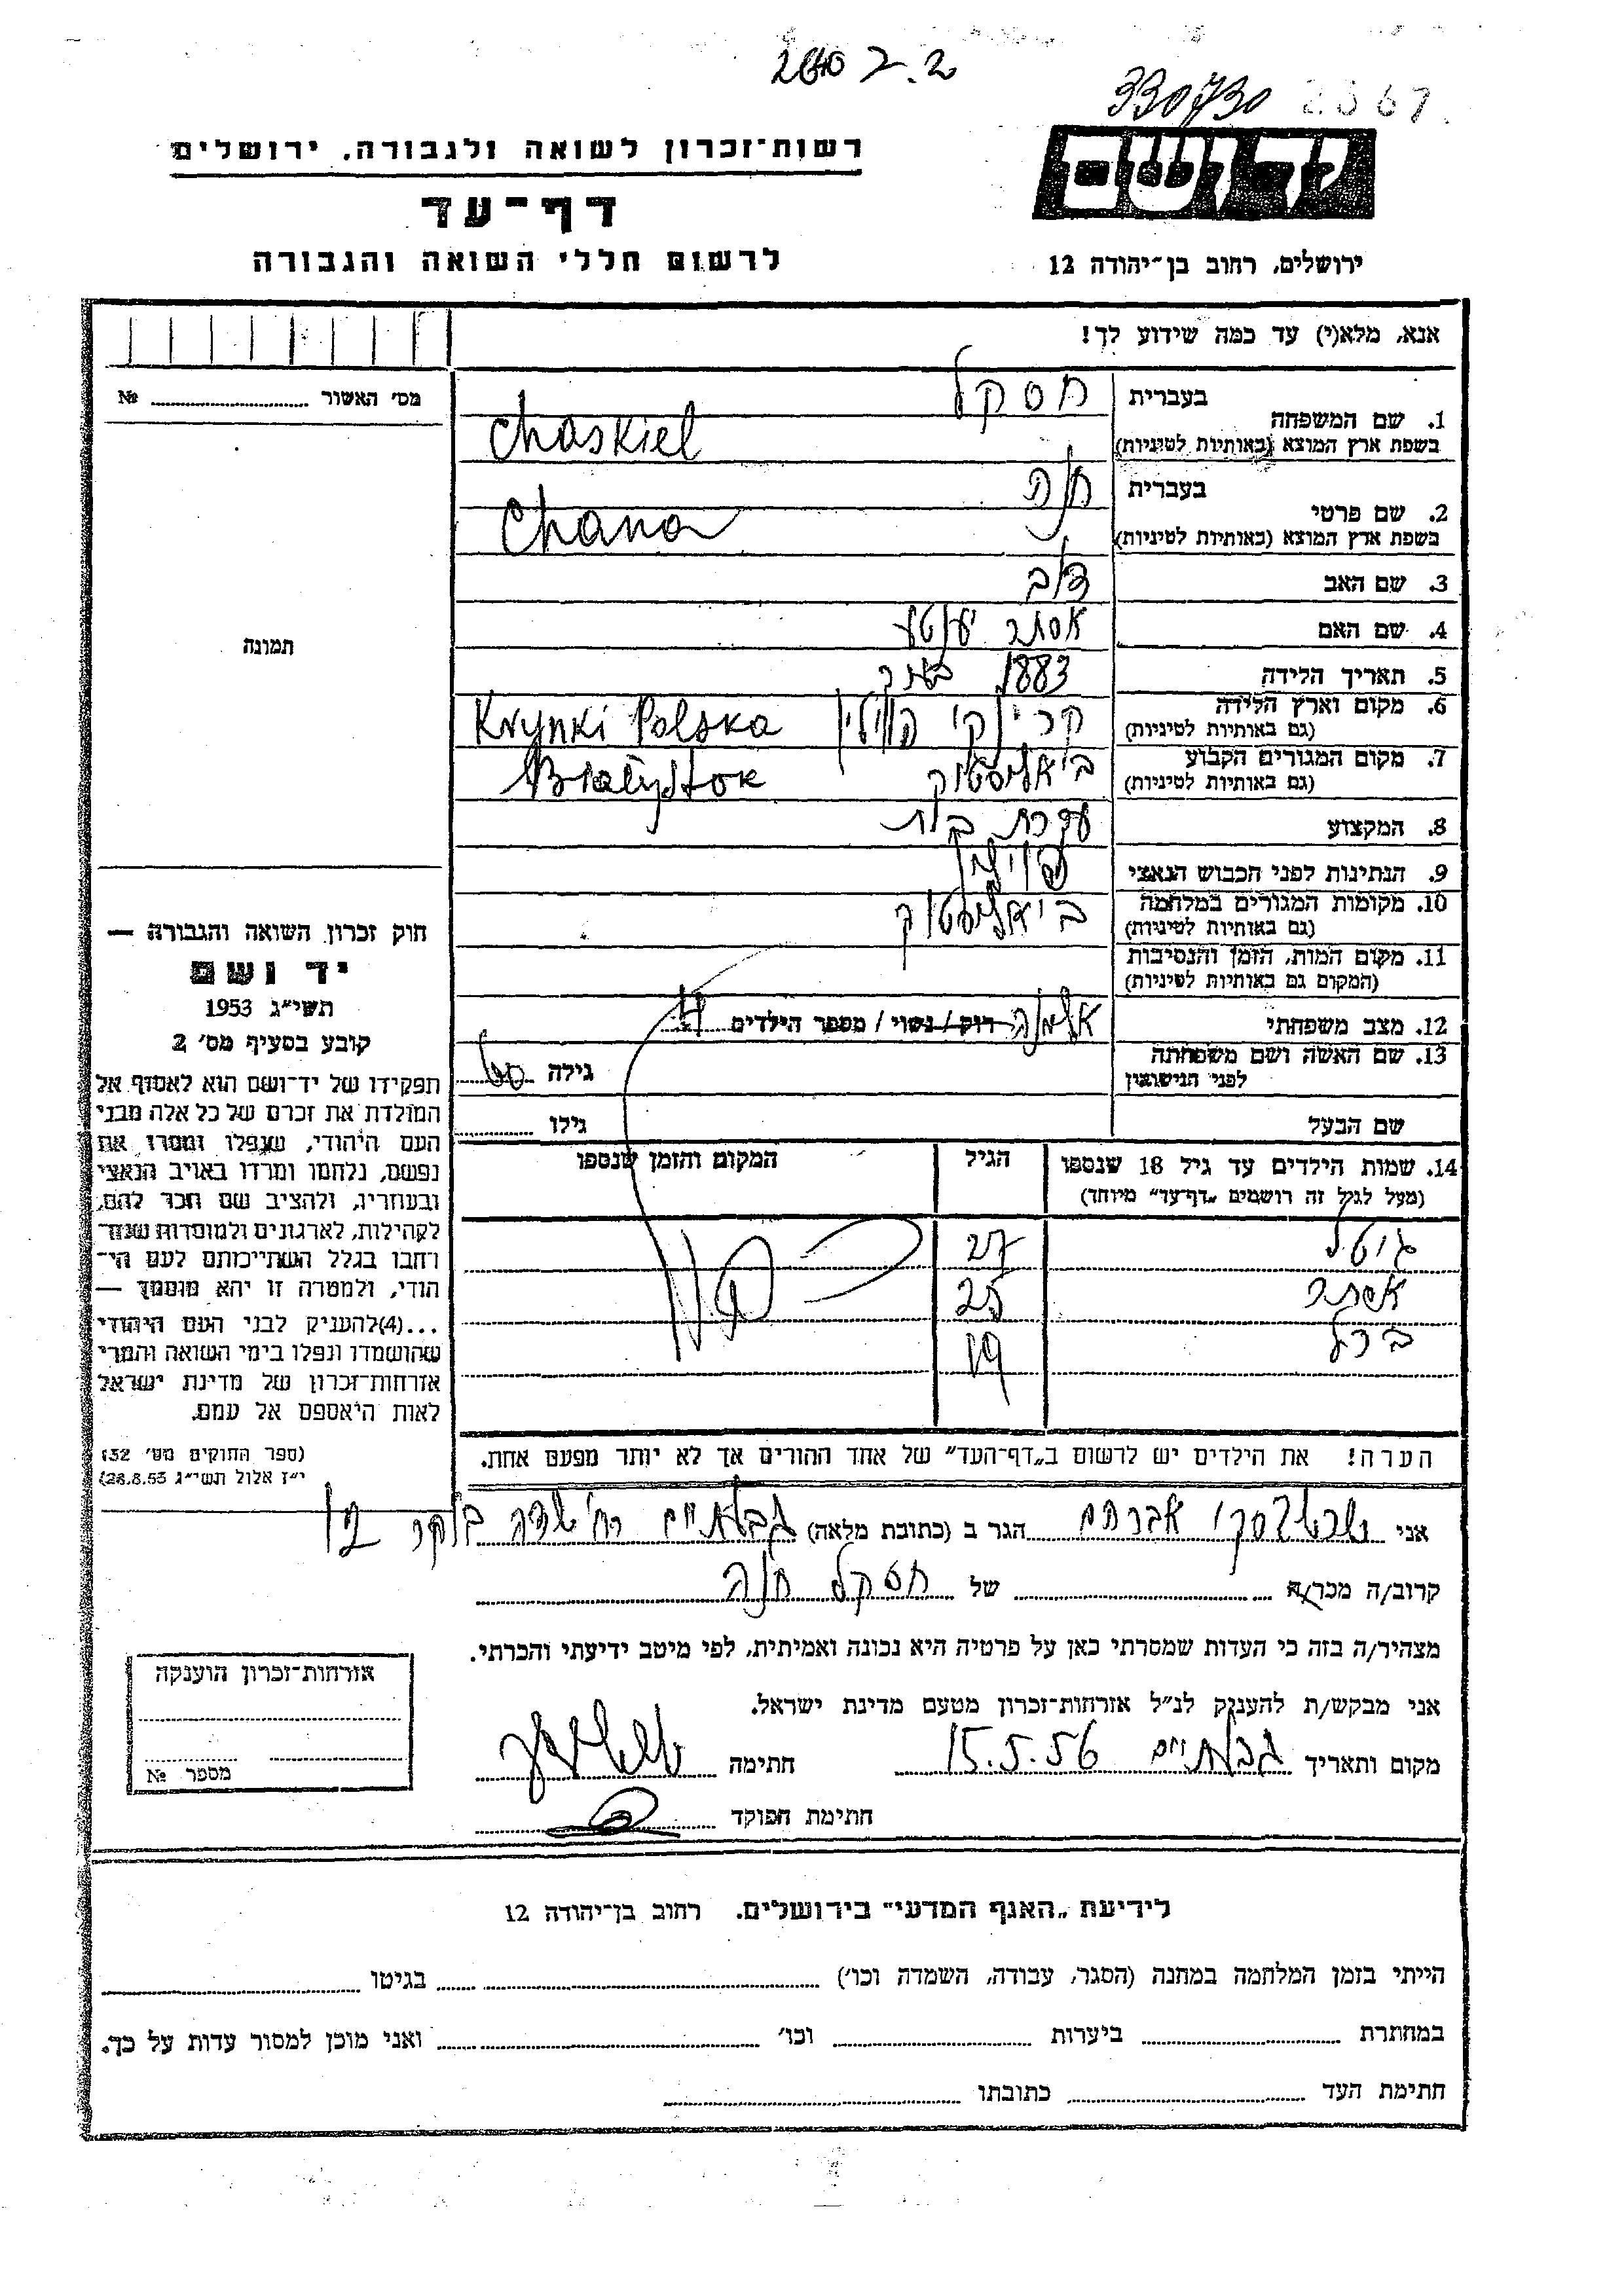 2.2
330730 2367
יד ושם
רשות־זכרון לשואה ולגבורה, ירושלים
דף־עד
לרשום חללי השואה והגבורה
ירושלים, רחוב בן־יהודה 12
אנא, מלא(י) עד כמה שידוע לך!
מס׳ האשור № 
תמונה
חוק זכרון השואה והגבורה —
יד ושם
תשי״ג 1953
קובע בסעיף מס׳ 2
תפקידו של יד־ושם הוא לאסוף אל
המולדת את זכרם של כל אלה מבני
העם היהודי, שנפלו ומסרו את
נפשם, נלחמו ומרדו באויב הנאצי
ובעוזריו, ולהציב שם וזכר להם,
לקהילות, לארגונים ולמוסדות שנח־
רבו בגלל השתייכותם לעם הי־
הודי, ולמטרה זו יהא מוסמך —
...(4)להעניק לבני העם היהודי
שהושמדו ונפלו בימי השואה והמרי
אזרחות־זכרון של מדינת ישראל
לאות היאספם אל עמם.
(ספר החוקים מס׳ 132
י״ז אלול תשי״ג 28.8.53)
1. שם המשפחה
בעברית חסקל
בשפת ארץ המוצא (באותיות לטיניות) Chaskiel
2. שם פרטי
בעברית חנה
בשפת ארץ המוצא (באותיות לטיניות) Chana
3. שם האב דוב
4. שם האם אסתר יענטע
5. תאריך הלידה 1883
6. מקום וארץ הלידה
(גם באותיות לטיניות) קרינקי פוילין Krynki Polska
7. מקום המגורים הקבוע
(גם באותיות לטיניות) ביאליסטוק Białystok
8. המקצוע עקרת בית
9. הנתינות לפני הכבוש הנאצי
10. מקומות המגורים במלחמה
(גם באותיות לטיניות) ביאליסטוק
11. מקום המות, הזמן והנסיבות
(המקום גם באותיות לטיניות)
12. מצב משפחתי אלמנה רווק / נשוי / מספר הילדים 4
13. שם האשה ושם משפחתה
לפני הנישואין גילה 60
שם הבעל גילו
14. שמות הילדים עד גיל 18 שנספו הגיל המקום והזמן שנספו
(מעל לגיל זה רושמים „דף־עד״ מיוחד)
גיטל 27
אסתר 25
ברל 19
הערה! את הילדים יש לרשום ב„דף־העד״ של אחד ההורים אך לא יותר מפעם אחת.
אני אברהם הגר ב (כתובת מלאה) גבעתיים רח׳ שדה בוקר 12
קרוב/ה מכר/ה של חסקל חנה
מצהיר/ה בזה כי העדות שמסרתי כאן על פרטיה היא נכונה ואמיתית, לפי מיטב ידיעתי והכרתי.
אני מבקש/ת להעניק לנ״ל אזרחות־זכרון מטעם מדינת ישראל.
מקום ותאריך גבעתיים 15.5.56 חתימה
חתימת הפוקד
אזרחות־זכרון הוענקה
מספר №
לידיעת „האגף המדעי״ בירושלים. רחוב בן־יהודה 12
הייתי בזמן המלחמה במחנה (הסגר, עבודה, השמדה וכו׳) בגיטו
במחתרת ביערות וכו׳ ואני מוכן למסור עדות על כך.
חתימת העד כתובתו